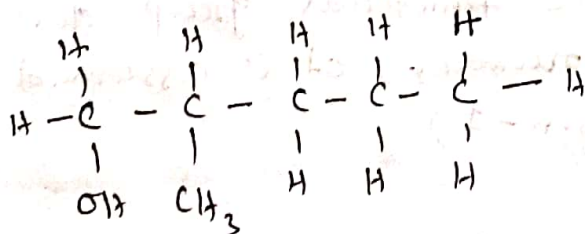 H H H H H
H - C - C - C - C - C - H
OH CH₃ H H H